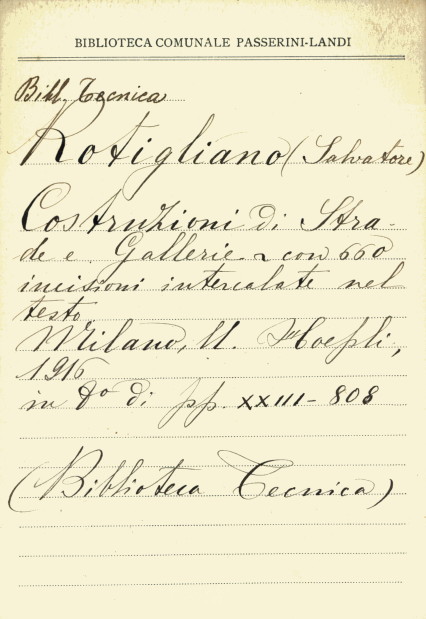 BIBLIOTECA COMUNALE PASSERINI-LANDI
Bibl. Tecnica
Rotigliano (Salvatore)
Costruzioni di Stra-
de e Gallerie - con 660
incisioni intercalate nel
testo.
Milano, U. Hoepli,
1916
in 8° di pp. XXIII - 808
(Biblioteca Tecnica)